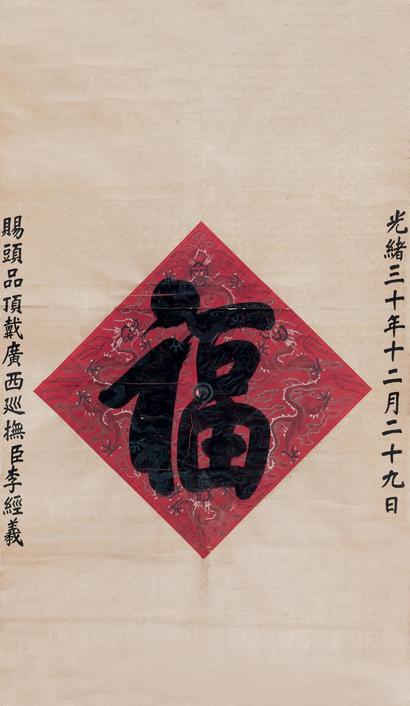 光緒三十年十二月二十九日
福
賜頭品頂戴廣西巡撫臣李經羲